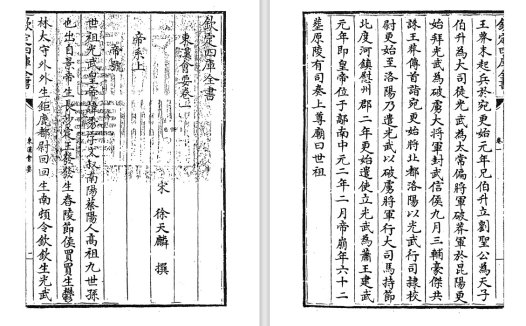 欽定四庫全書
東漢會要卷一
宋 徐天麟 撰
帝系上
帝號
世祖光武皇帝諱秀字文叔南陽蔡陽人高祖九世孫
也出自景帝生長沙定王發發生舂陵節侯買買生鬱
林太守外外生鉅鹿都尉回回生南頓令欽欽生光武
欽定四庫全書
東漢會要
卷一
王莽末起兵於宛更始元年兄伯升立劉聖公為天子
伯升為大司徒光武為太常偏將軍破莽軍於昆陽更
始拜光武為破虜大將軍封武信侯九月三輔豪傑共
誅王莽傳首詣宛更始將北都洛陽以光武行司隸校
尉更始至洛陽乃遣光武以破虜將軍行大司馬持節
北度河鎮慰州郡二年更始遣使立光武為蕭王建武
元年即皇帝位于鄗南中元二年二月帝崩年六十二
葬原陵有司奏上尊廟曰世祖